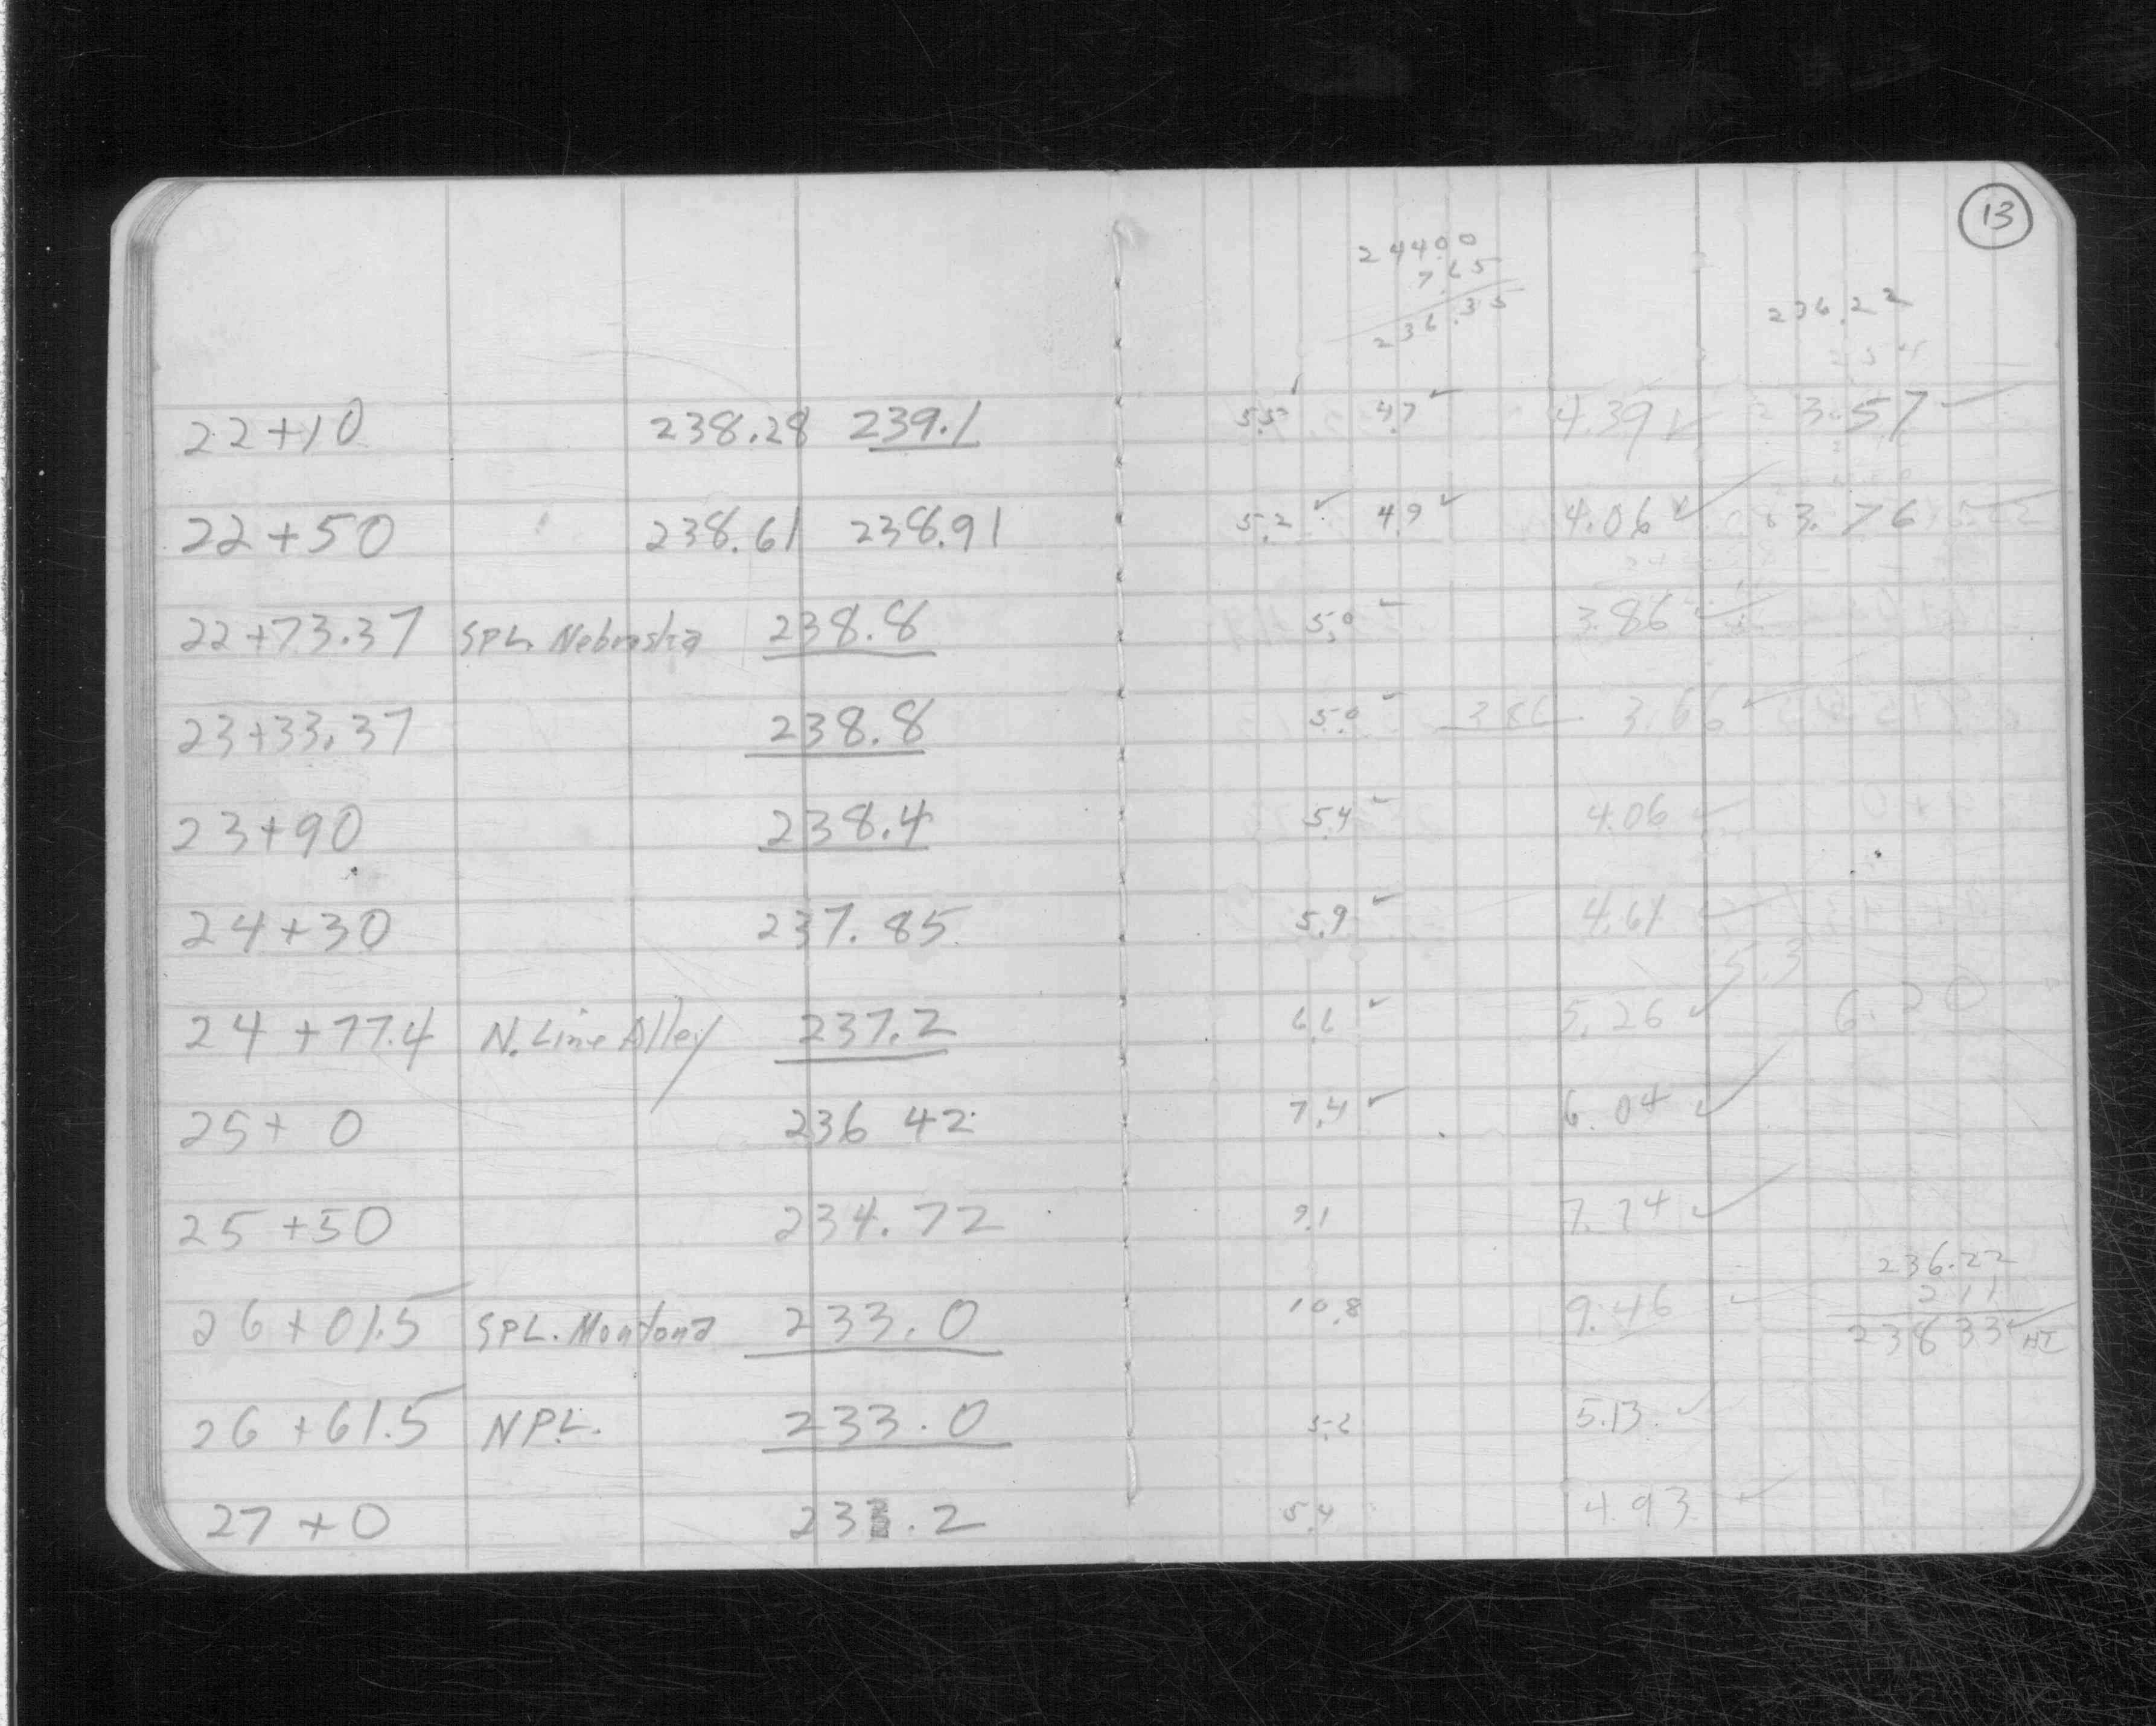 13
244.00
7.65
236.35
236.22
22+10 238.28 239.1 5.5 4.7 4.39 3.57
22+50 238.61 238.91 5.2 4.9 4.06 3.76
22+73.37 SPL. Nebraska 238.8 5.0 3.86
23+33.37 238.8 5.0 3.86 3.66
23+90 238.4 5.4 4.06
24+30 237.85 5.9 4.61
5.3
24+77.4 N. Line Alley 237.2 6.6 5.26 6.20
25+0 236 42 7.4 6.04
25+50 234.72 9.1 7.74
236.22
2 11
26+01.5 SPL. Montana 233.0 10.8 9.46 238 33 HI
26+61.5 NPL. 233.0 5.2 5.13
27+0 233.2 5.4 4.93